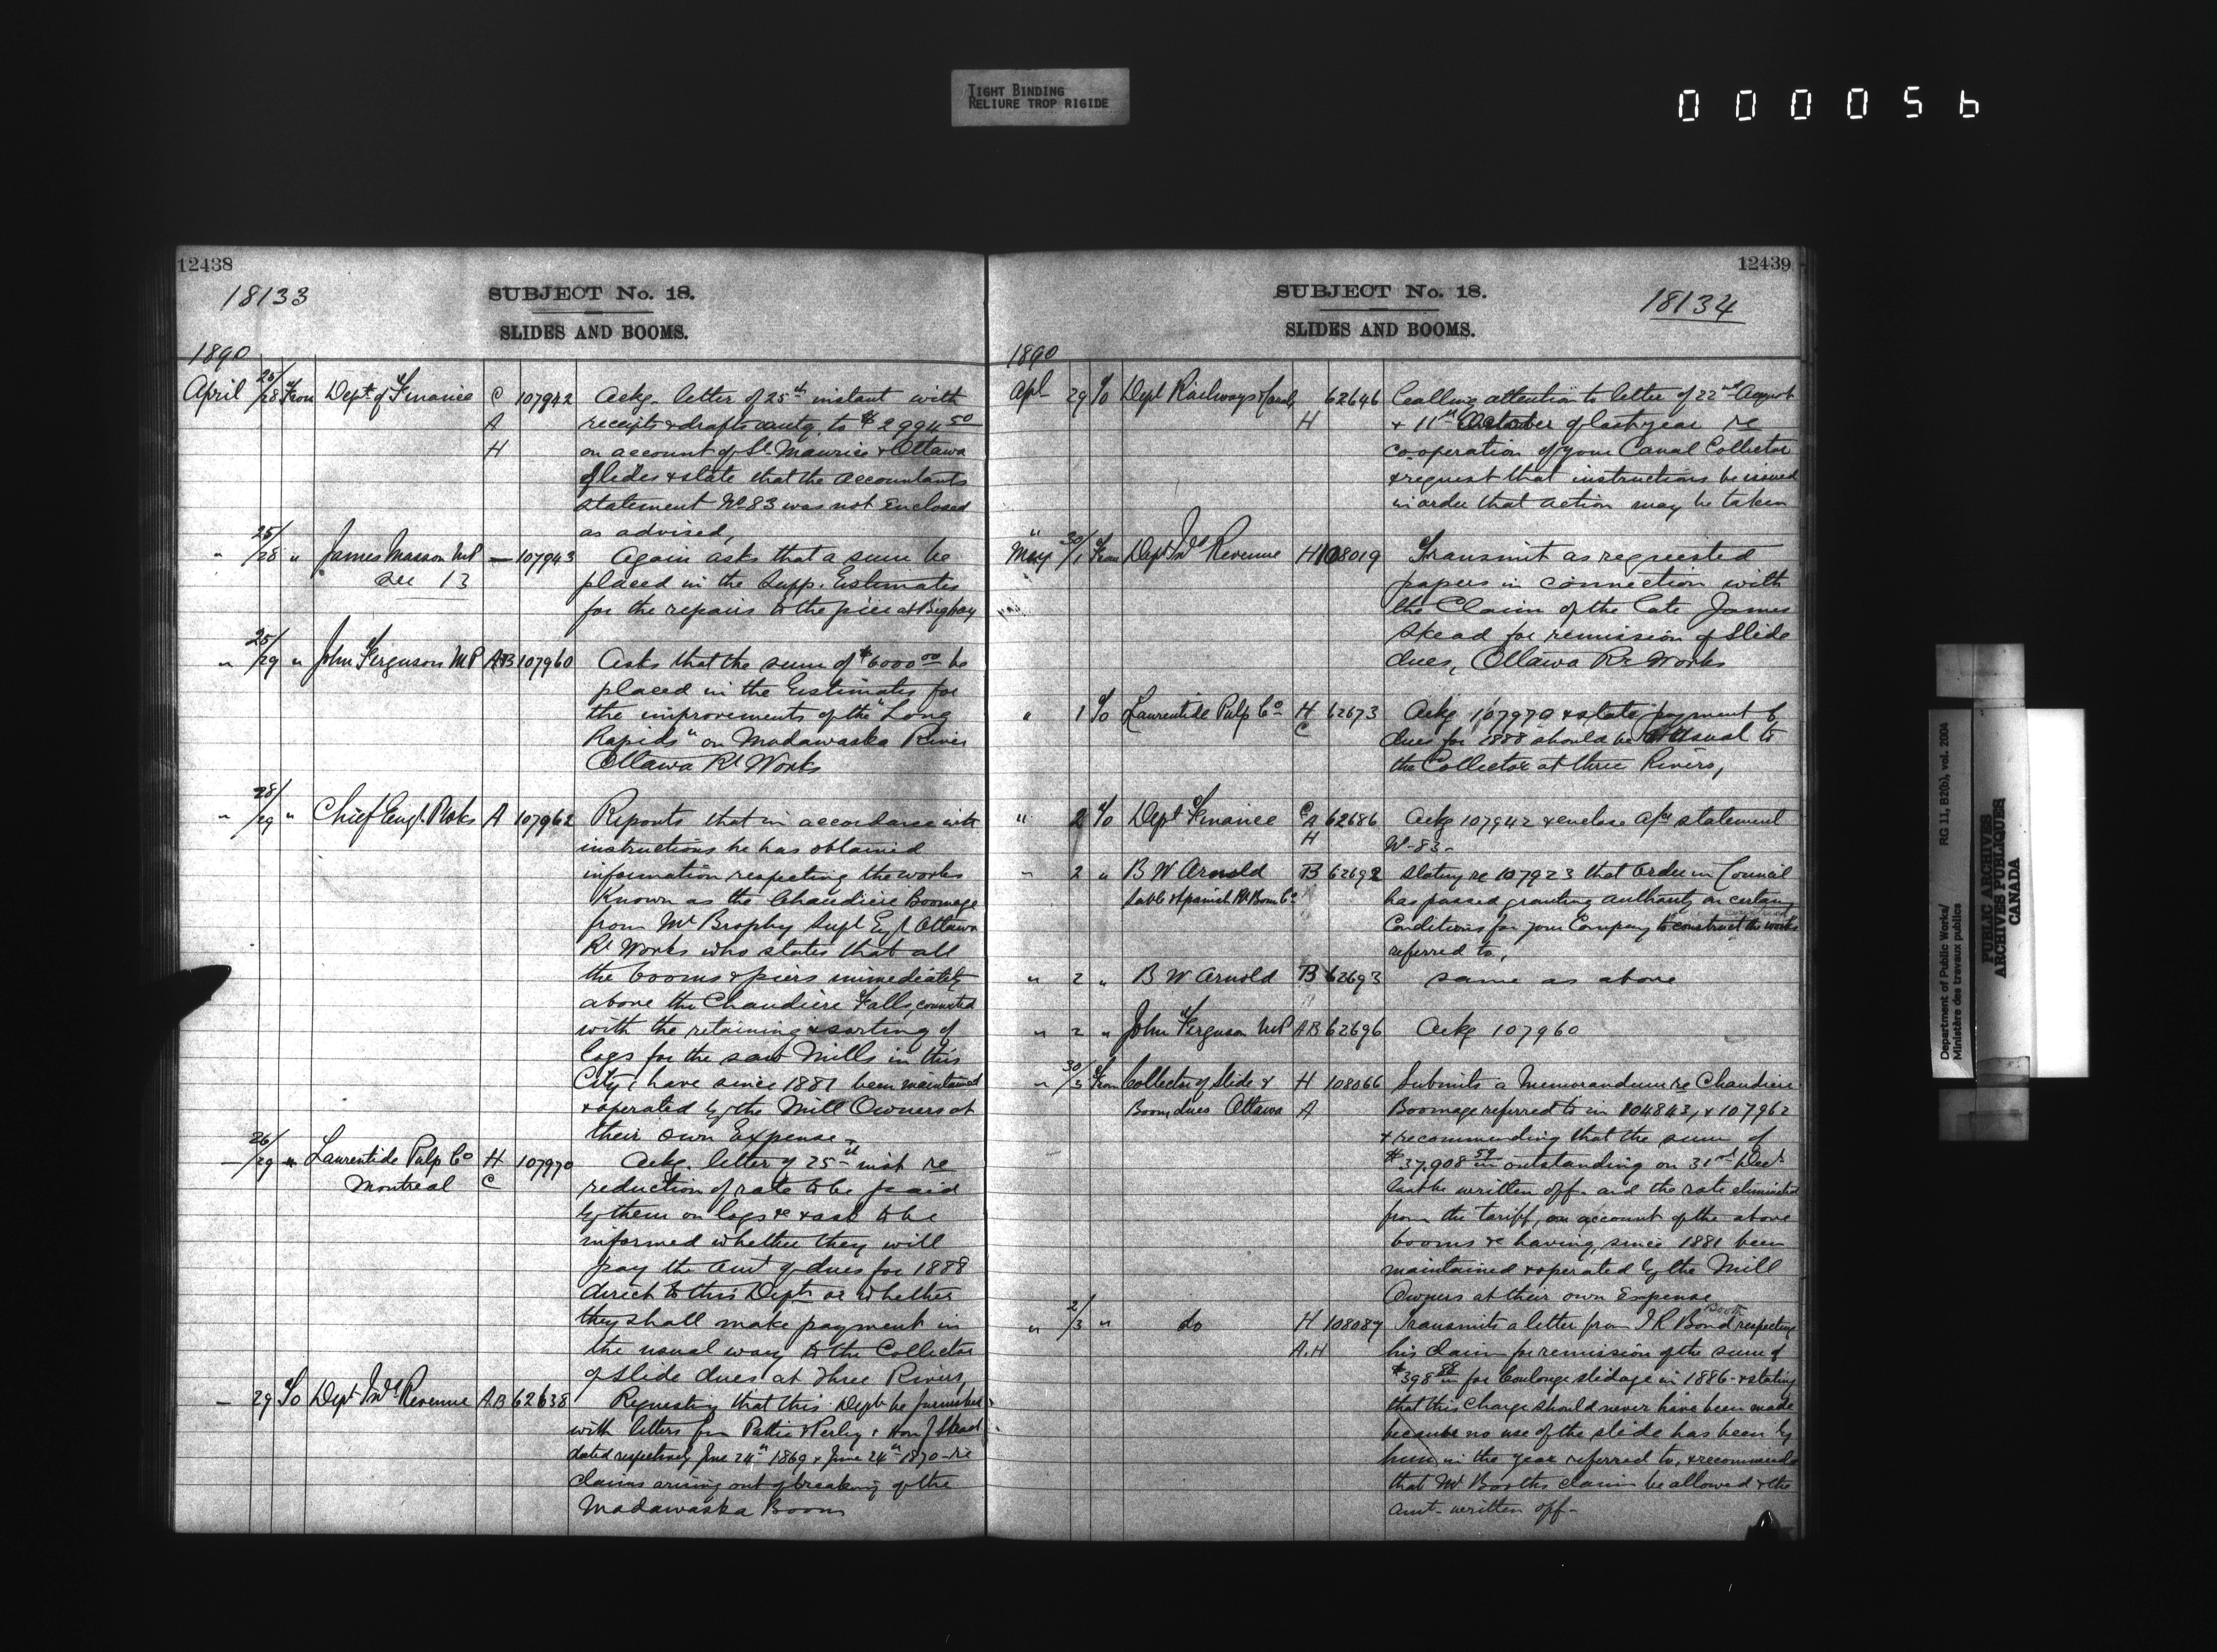 TIGHT BINDING
RELIURE TROP RIGIDE
000056
12438
18133
SUBJECT No. 18.
SLIDES AND BOOMS.
1890
April 25/28 From Dept of Finance C 107942 Ackg. letter of 25th instant with
A receipts & drafts amtg. to $2994.50
H on account of St. Maurice & Ottawa
Slides & state that the accountants
statement No 83 was not enclosed
as advised,
" 25/28 " James Masson MP — 107943 Again asks that a sum be
See 13 placed in the Supp. Estimates
for the repairs to the pier at Bigbay
" 25/29 " John Ferguson MP A+B 107960 Asks that the sum of $6000.00 be
placed in the Estimates for
the improvements of the "Long
Rapids" on Madawaska River
Ottawa Rr Works
" 28/29 " Chief Engr. P Wks A 107962 Reports that in accordance with
instructions he has obtained
information respecting the works
Known as the Chaudiere Boomage
from Mr Brophy Supt Egr Ottawa
Rr Works who states that all
the booms & piers immediately
above the Chaudiere Falls, connected
with the retaining & sorting of
logs for the saw Mills in this
City, have since 1881 been maintained
& operated by the Mill Owners at
their own Expense.
— 26/29 " Laurentide Pulp Co H 107970 Ackg. letter of 25th inst re
Montreal C reduction of rate to be paid
by them on logs &c & ask to be
informed whether they will
pay the amt of dues for 1888
direct to this Dept. or whether
they shall make payment in
the usual way to the Collector
of slide dues at Three Rivers,
— 29 To Dept Ind Revenue A.B 62638 Requesting that this Dept be furnished
with letters from Pattie & Perley & Hon J Skead
dated respectively June 24th 1869 & June 24th 1870 - re
Claims arising out of breaking of the
Madawaska Boom
12439
SUBJECT No. 18.
18134
SLIDES AND BOOMS.
1890
Apl 29 To Dept Railways & Canals 62646 Calling attention to letter of 22nd August
H & 11th October of last year re
co-operation of your Canal Collector
& request that instructions be issued
in order that action may be taken
" May 30/1 From Dept Ind Revenue H 108019 Transmit as requested
papers in connection with
the Claim of the late James
Skead for remission of Slide
dues, Ottawa Rr Works
" 1 To Laurentide Pulp Co H 62673 Ackg 107970 & state payment of
C dues for 1888 should be as usual to
the Collector at three Rivers,
" 2 To Dept Finance C A 62686 Ackg 107942 & enclose a/cs statement
H No 83-
" 2 " B W Arnold B 62692 Stating re 107923 that Order in Council
Sable & Spanish Rr Boom Co has passed granting authority on certain
Conditions for your Company to construct the works
referred to,
" 2 " B W Arnold B 62693 same as above
" 2 " John Ferguson MP AB 62696 Ackg 107960
" 30/3 From Collector of Slide & H 108066 Submits a Memorandum re Chaudiere
Boom dues Ottawa A Boomage referred to in 104843, & 107962
& recommending that the sum of
$37,908.59 outstanding on 31st Decr
last be written off. and the rate eliminated
from the tariff, on account of the above
booms &c having, since 1881 been
maintained & operated by the Mill
Owners at their own Expense
Booth
" 2/3 " do H 108087 Transmits a letter from J R Bond respecting
A.H his claim for remission of the sum of
$398.88 for Coulonge slidage in 1886 - & stating
that this Charge should never have been made
because no use of the slide has been by
him in the year referred to, & recommends
that Mr Booths claim be allowed & the
amt. written off-
Department of Public Works/
Ministère des travaux publics
RG 11, B2(b), vol. 2004
PUBLIC ARCHIVES
ARCHIVES PUBLIQUES
CANADA